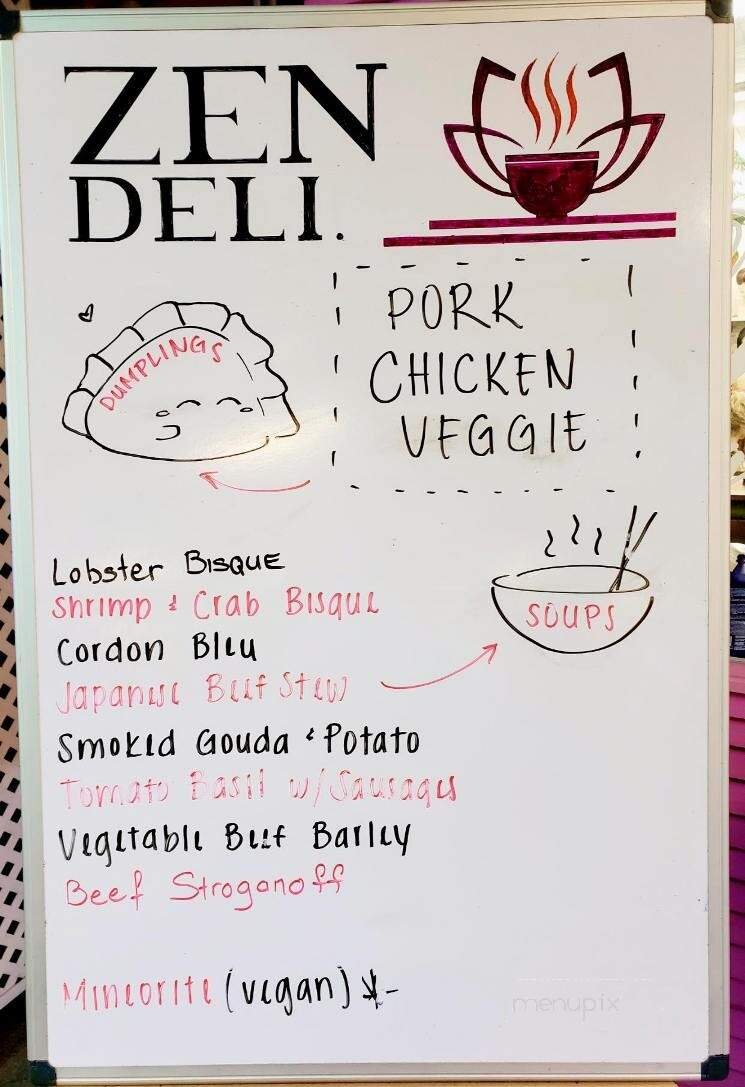 ZEN
DELI.
DUMPLINGS
PORK
CHICKEN
VEGGIE
SOUPS
Lobster Bisque
Shrimp & Crab Bisque
Cordon Bleu
Japanese Beef Stew
Smoked Gouda & Potato
Tomato Basil w/ Sausages
Vegetable Beef Barley
Beef Stroganoff
Mineorite (vegan)
menupix